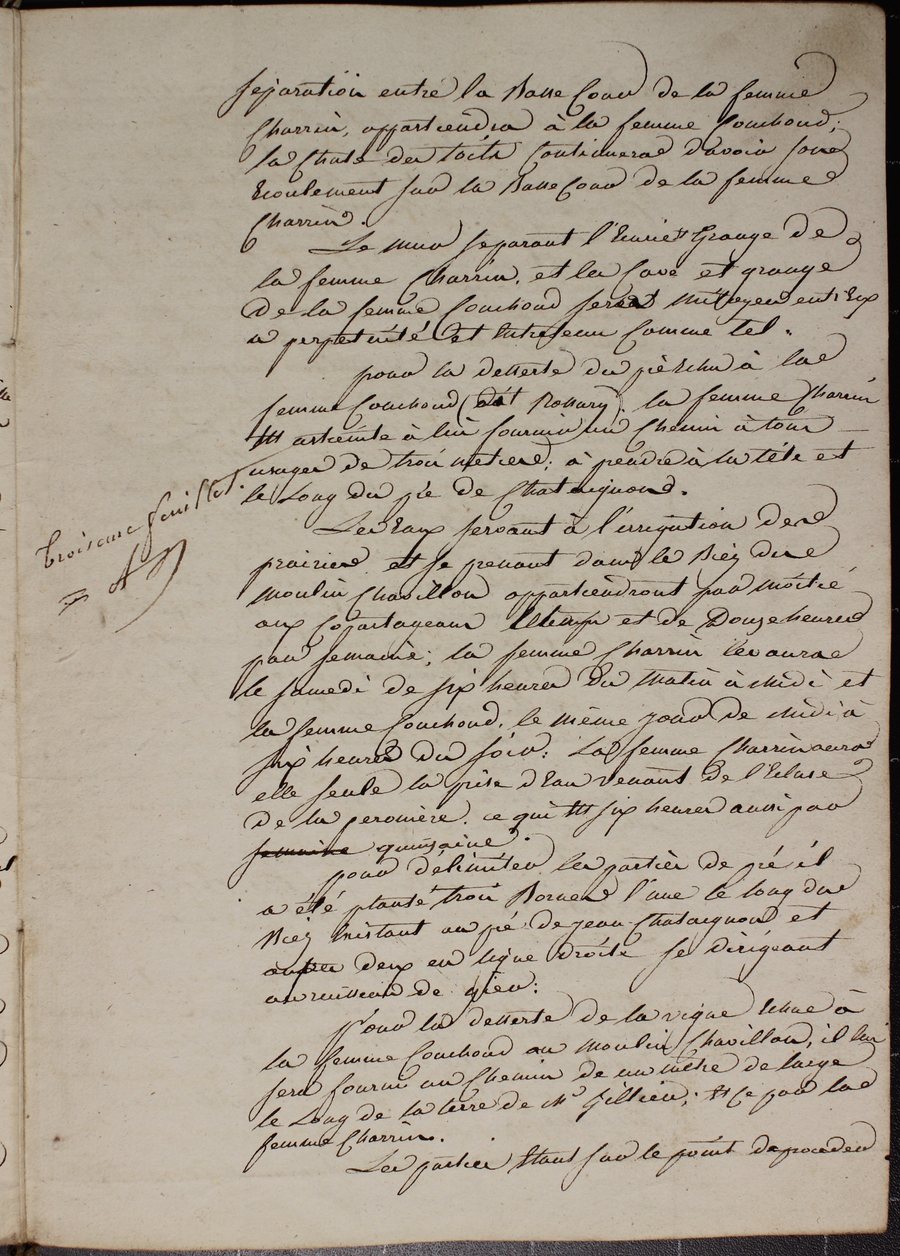 séparation entre la Basse Cour de la femme
Charrin, appartiendra à la femme Couchoud;
la Chute des toits Continuera d'avoir son
Ecoulement sur la Basse Cour de la femme
Charrin.
Le mur séparant l'Ecurie et Grange de
la femme Charrin, et la Cave et grange
de la femme Couchoud sera mitoyen entr'Eux
a perpétuité et Entretenu Comme tel.
pour la desserte du pré Echu à la
femme Couchoud (dit Rossary) la femme Charrin
Est astreinte à lui fournir un Chemin à tous
usages de trois metres; à prendre à la tête et
le Long du pré de Chataignond.
Troisieme feuillet.
Les Eaux servant à l'irrigation des
prairies et se prenant dans le Biez du
moulin Chavillon appartiendront par moitié
aux Copartageans le temps est de Douze heures
par semaine; la femme Charrin les aura
le samedi de six heures du matin à midi et
la femme Couchoud, le même jour de midi à
six heures du soir: La femme Charrin aura
elle seule la prise d'Eau venant de l'Ecluse
de la peronière, ce qui Est six heures aussi par
semaine quinzaine.
pour délimiter les parties de pré il
a été planté trois Bornes l'une le long du
Biez Existant au pré de jean Chataignond et
autres deux en ligne droite se dirigeant
au ruisseau de gier:
Pour la desserte de la vigne Echue à
la femme Couchoud au moulin Chavillon, il lui
sera fourni un Chemin de un mètre de large
le Long de la terre de Mr Gillier; Et Ce par la
femme Charrin.
Les parties Etant sur le point de proceder